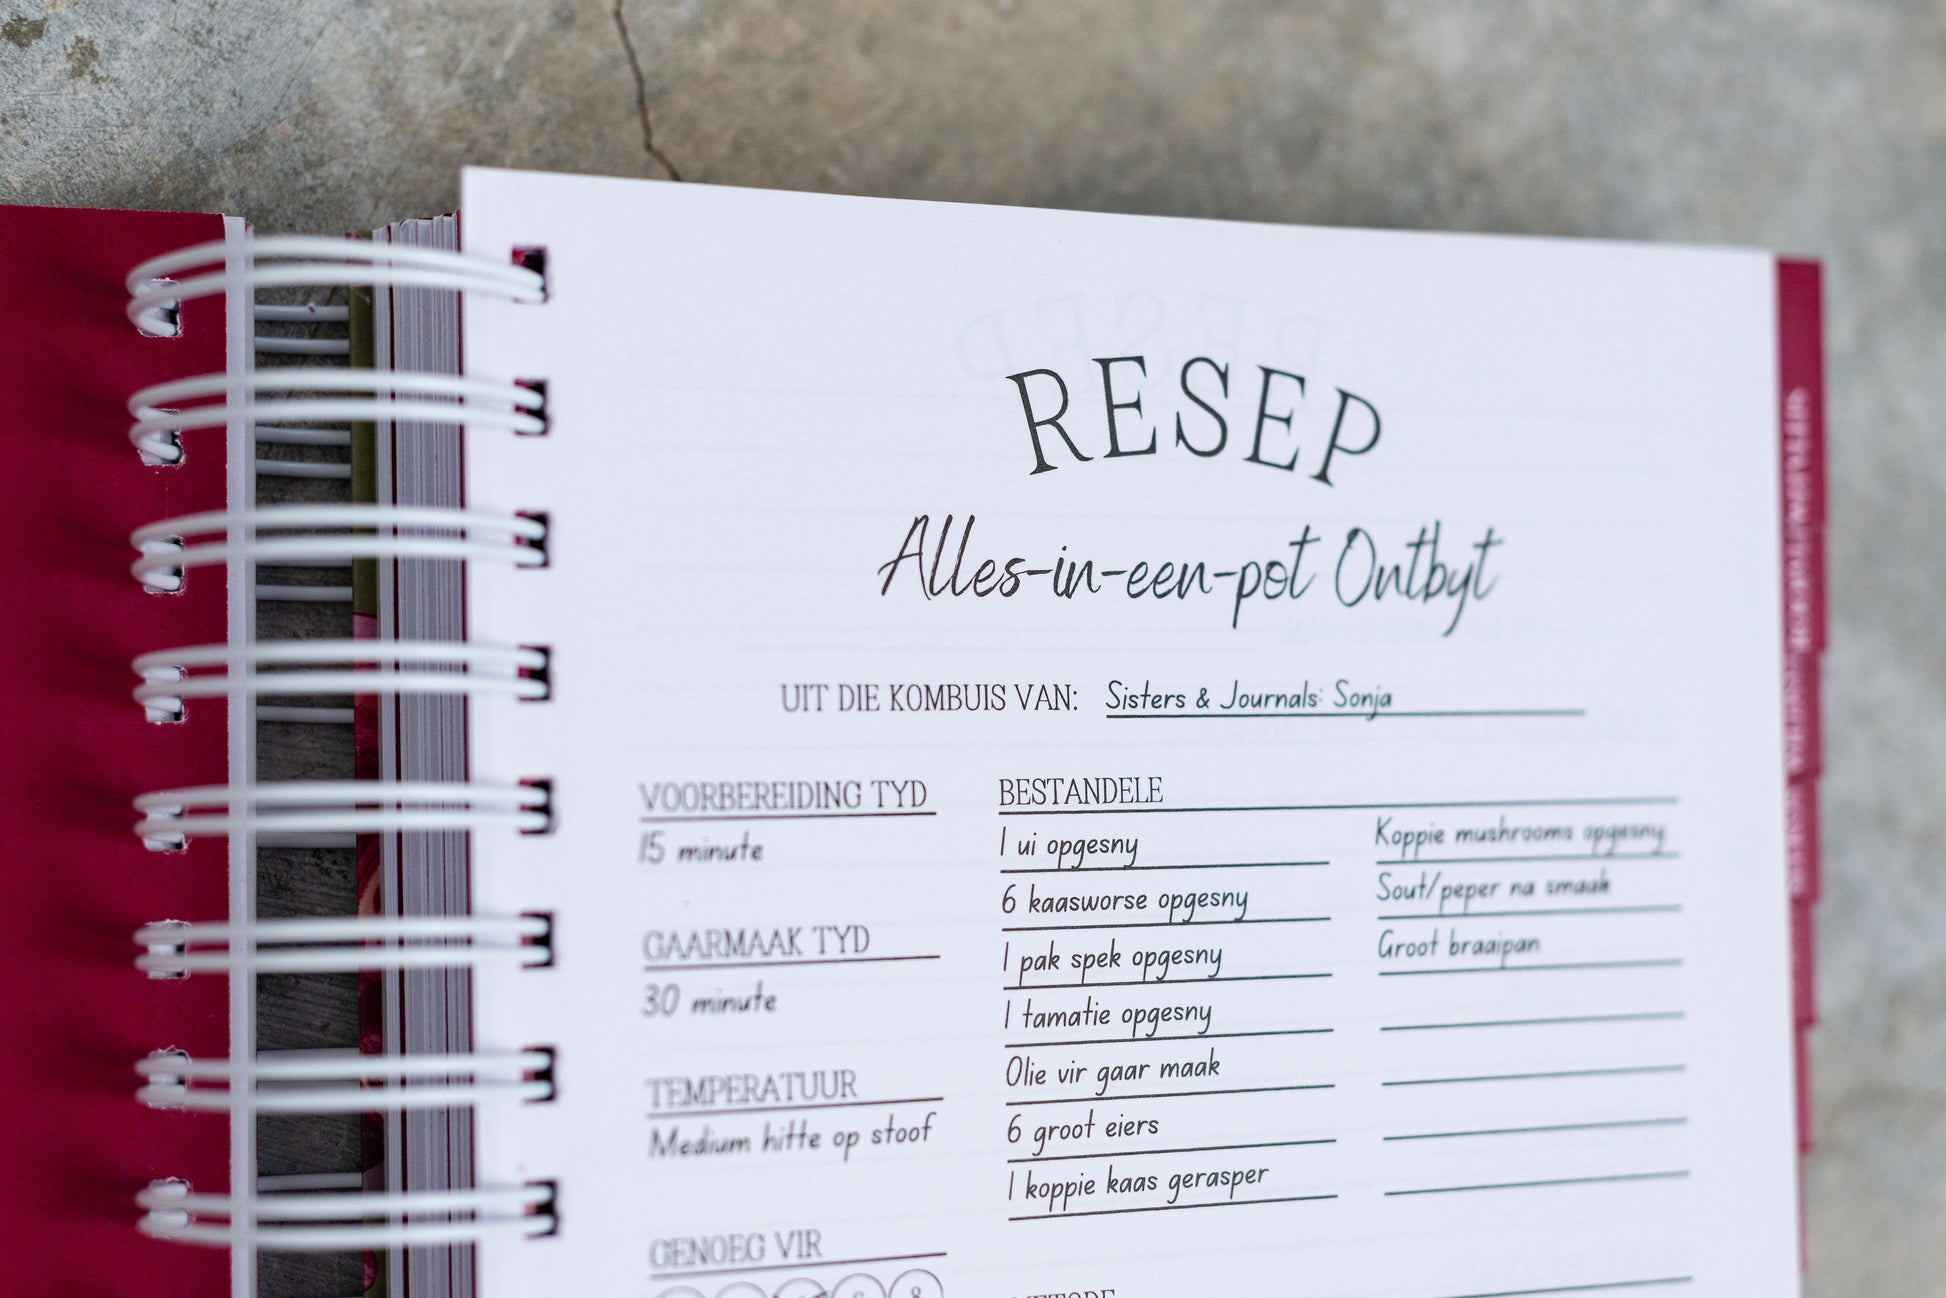 RESEP
Alles-in-een-pot Ontbyt
UIT DIE KOMBUIS VAN: Sisters & Journals: Sonja
VOORBEREIDING TYD
15 minute
GAARMAAK TYD
30 minute
TEMPERATUUR
Medium hitte op stoof
GENOEG VIR
6 8
BESTANDELE
1 ui opgesny
6 kaasworse opgesny
1 pak spek opgesny
1 tamatie opgesny
Olie vir gaar maak
6 groot eiers
1 koppie kaas gerasper
Koppie mushrooms opgesny
Sout/peper na smaak
Groot braaipan
METODE